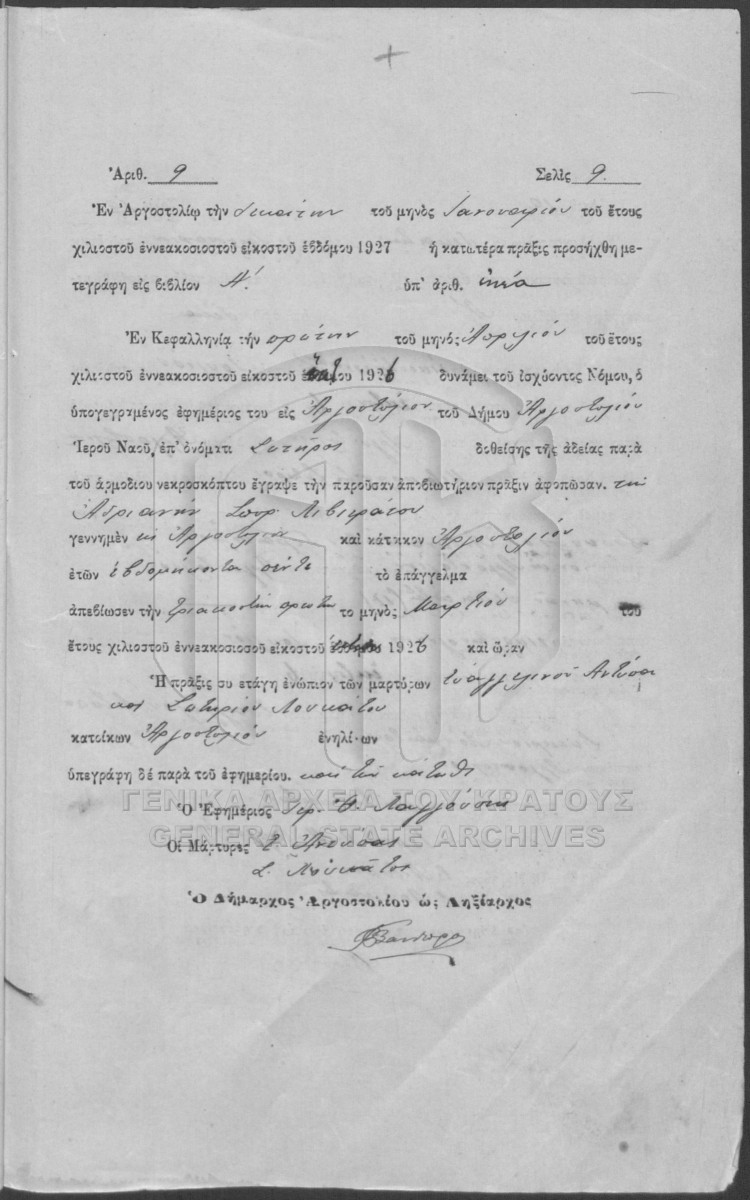 Ἀριθ. 9 Σελὶς 9.
Ἐν Ἀργοστολίῳ τὴν δεκάτην τοῦ μηνὸς Ἰανουαρίου τοῦ ἔτους
χιλιοστοῦ ἐννεακοσιοστοῦ εἰκοστοῦ ἑβδόμου 1927 ἡ κατωτέρα πρᾶξις προσήχθη με-
τεγράφη εἰς βιβλίον Α! ὑπ' ἀριθ. ἐννέα
Ἐν Κεφαλληνίᾳ τὴν πρώτην τοῦ μηνὸς Ἀπριλίου τοῦ ἔτους
χιλιοστοῦ ἐννεακοσιοστοῦ εἰκοστοῦ 1926 δυνάμει τοῦ ἰσχύοντος Νόμου, ὁ
ὑπογεγραμένος ἐφημέριος του εἰς Ἀργοστόλιον τοῦ Δήμου Ἀργοστολίου
Ἱεροῦ Ναοῦ, ἐπ' ὀνόματι Σωτῆρος δοθείσης τῆς ἀδείας παρὰ
τοῦ ἁρμοδιου νεκροσκόπτου ἔγραψε τὴν παροῦσαν ἀποβιωτήριον πρᾶξιν ἀφοπῶσαν. την
Ἀδριανὴν Σπυρ. Λιβιεράτου
γεννημὲν ἐν Ἀργοστολίῳ καὶ κάτοικον Ἀργοστολίου
ἐτῶν ἑβδομήκοντα πέντε τὸ ἐπάγγελμα
ἀπεβίωσεν τὴν τριακοστὴν πρώτην το μηνὸς Μαρτίου τοῦ
ἔτους χιλιοστοῦ ἐννεακοσιοσοῦ εἰκοστοῦ 1926 καὶ ὥραν
Ἡ πρᾶξις συ ετάγη ἐνώπιον τῶν μαρτύρων Εὐαγγελινοῦ Ἀντύπα
καὶ Σωτηρίου Λουκάτου
κατοίκων Ἀργοστολίου ἐνηλίκων
ὑπεγράφη δὲ παρὰ τοῦ ἐφημερίου. καὶ τῶν κάτωθι
ΓΕΝΙΚΑ ΑΡΧΕΙΑ ΤΟΥ ΚΡΑΤΟΥΣ
Ὁ Ἐφημέριος Ἱερ. Θ.
GENERAL STATE ARCHIVES
Οἱ Μάρτυρες Ε. Ἀντύπας
Σ. Λουκάτος
Ὁ Δήμαρχος Ἀργοστολίου ὡς Ληξίαρχος